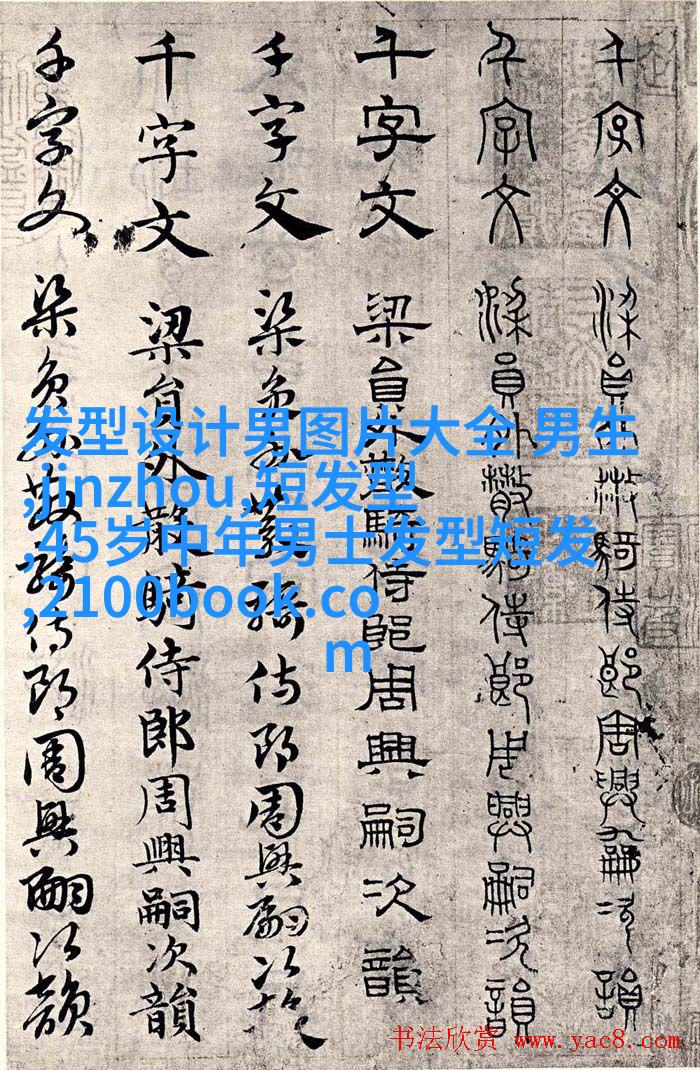 千字文 梁員外散騎侍郎周興嗣次韻
千字文 梁員外散騎侍郎周興嗣次韻
千字文 梁員外散騎侍郎周興嗣次韻
千字文 梁員外散騎侍郎周興嗣次韻
千字文 梁員外散騎侍郎周興嗣次韻
千字文 梁員外散騎侍郎周興嗣次韻
发型设计男图片大全 男生
,jinzhou,短发型
,45岁中年男士发型短发
,2100book.co
m
书法欣赏 www.yac8.com